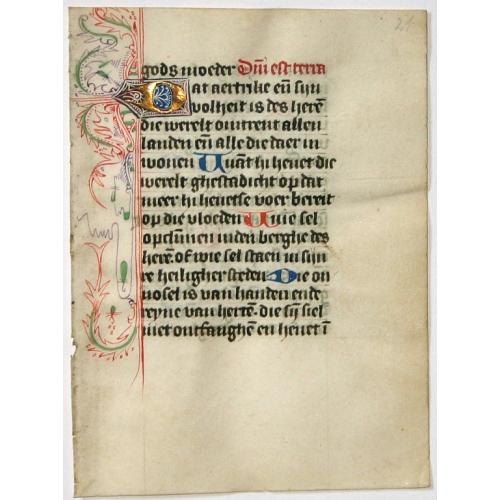 21
gods moeder Dm̄ est terra
Dat aertrike eñ syn
volheit is des herē
die werelt omtrent allen
landen eñ alle die daer in
wonen Want hi hevet die
werelt ghestadicht op dat
meer hi hevetse voer bereit
op die vloeden Wie sel
opclimmen inden berghe des
herē of wie sel staen in sijn
re heiligher steden Die on
nosel is van handen ende
reyne van herten die sij siel
niet ontfanghē en hevet ī